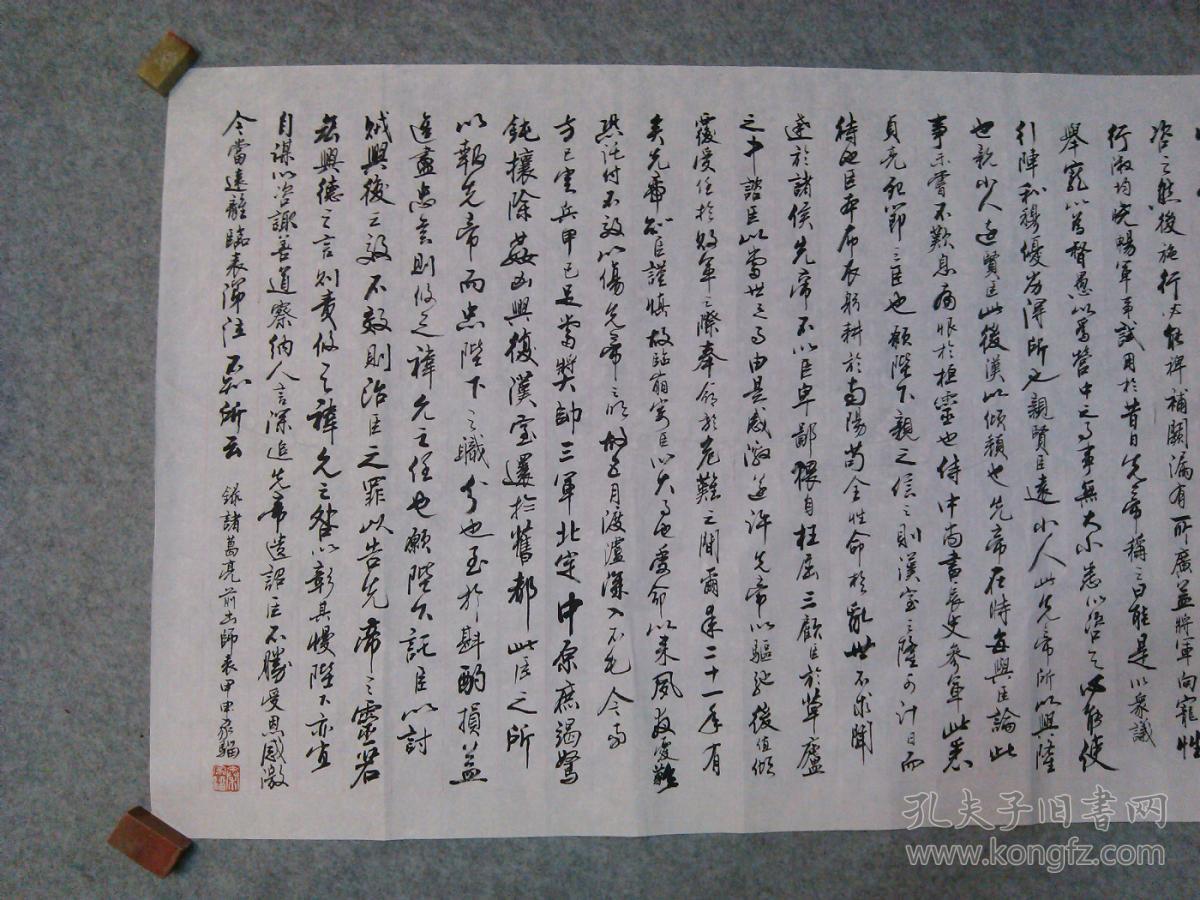 咨之然後施行必能裨補闕漏有所廣益將軍向寵性
行淑均曉暢軍事試用於昔日先帝稱之曰能是以衆議
舉寵以爲督愚以爲營中之事事無大小悉以咨之必能使
行陣和穆優劣得所也親賢臣遠小人此先帝所以興隆
也親小人遠賢臣此後漢以傾頹也先帝在時每與臣論此
事未嘗不歎息痛恨於桓靈也侍中尚書長史參軍此悉
貞亮死節之臣也願陛下親之信之則漢室之隆可計日而
待也臣本布衣躬耕於南陽苟全性命於亂世不求聞
達於諸侯先帝不以臣卑鄙猥自枉屈三顧臣於草廬
之中諮臣以當世之事由是感激遂許先帝以驅馳後值傾
覆受任於敗軍之際奉命於危難之間爾來二十一年有
矣先帝知臣謹慎故臨崩寄臣以大事也受命以來夙夜憂歎
恐託付不效以傷先帝之明故五月渡瀘深入不毛今南
方已定兵甲已足當獎帥三軍北定中原庶竭駑
鈍攘除姦凶興復漢室還於舊都此臣之所
以報先帝而忠陛下之職分也至於斟酌損益
進盡忠言則攸之褘允之任也願陛下託臣以討
賊興復之效不效則治臣之罪以告先帝之靈若
無興德之言則責攸之褘允之咎以彰其慢陛下亦宜
自謀以咨諏善道察納人言深追先帝遺詔臣不勝受恩感激
今當遠離臨表涕泣不知所云
錄諸葛亮前出師表甲申
孔夫子旧书网
www.kongfz.com